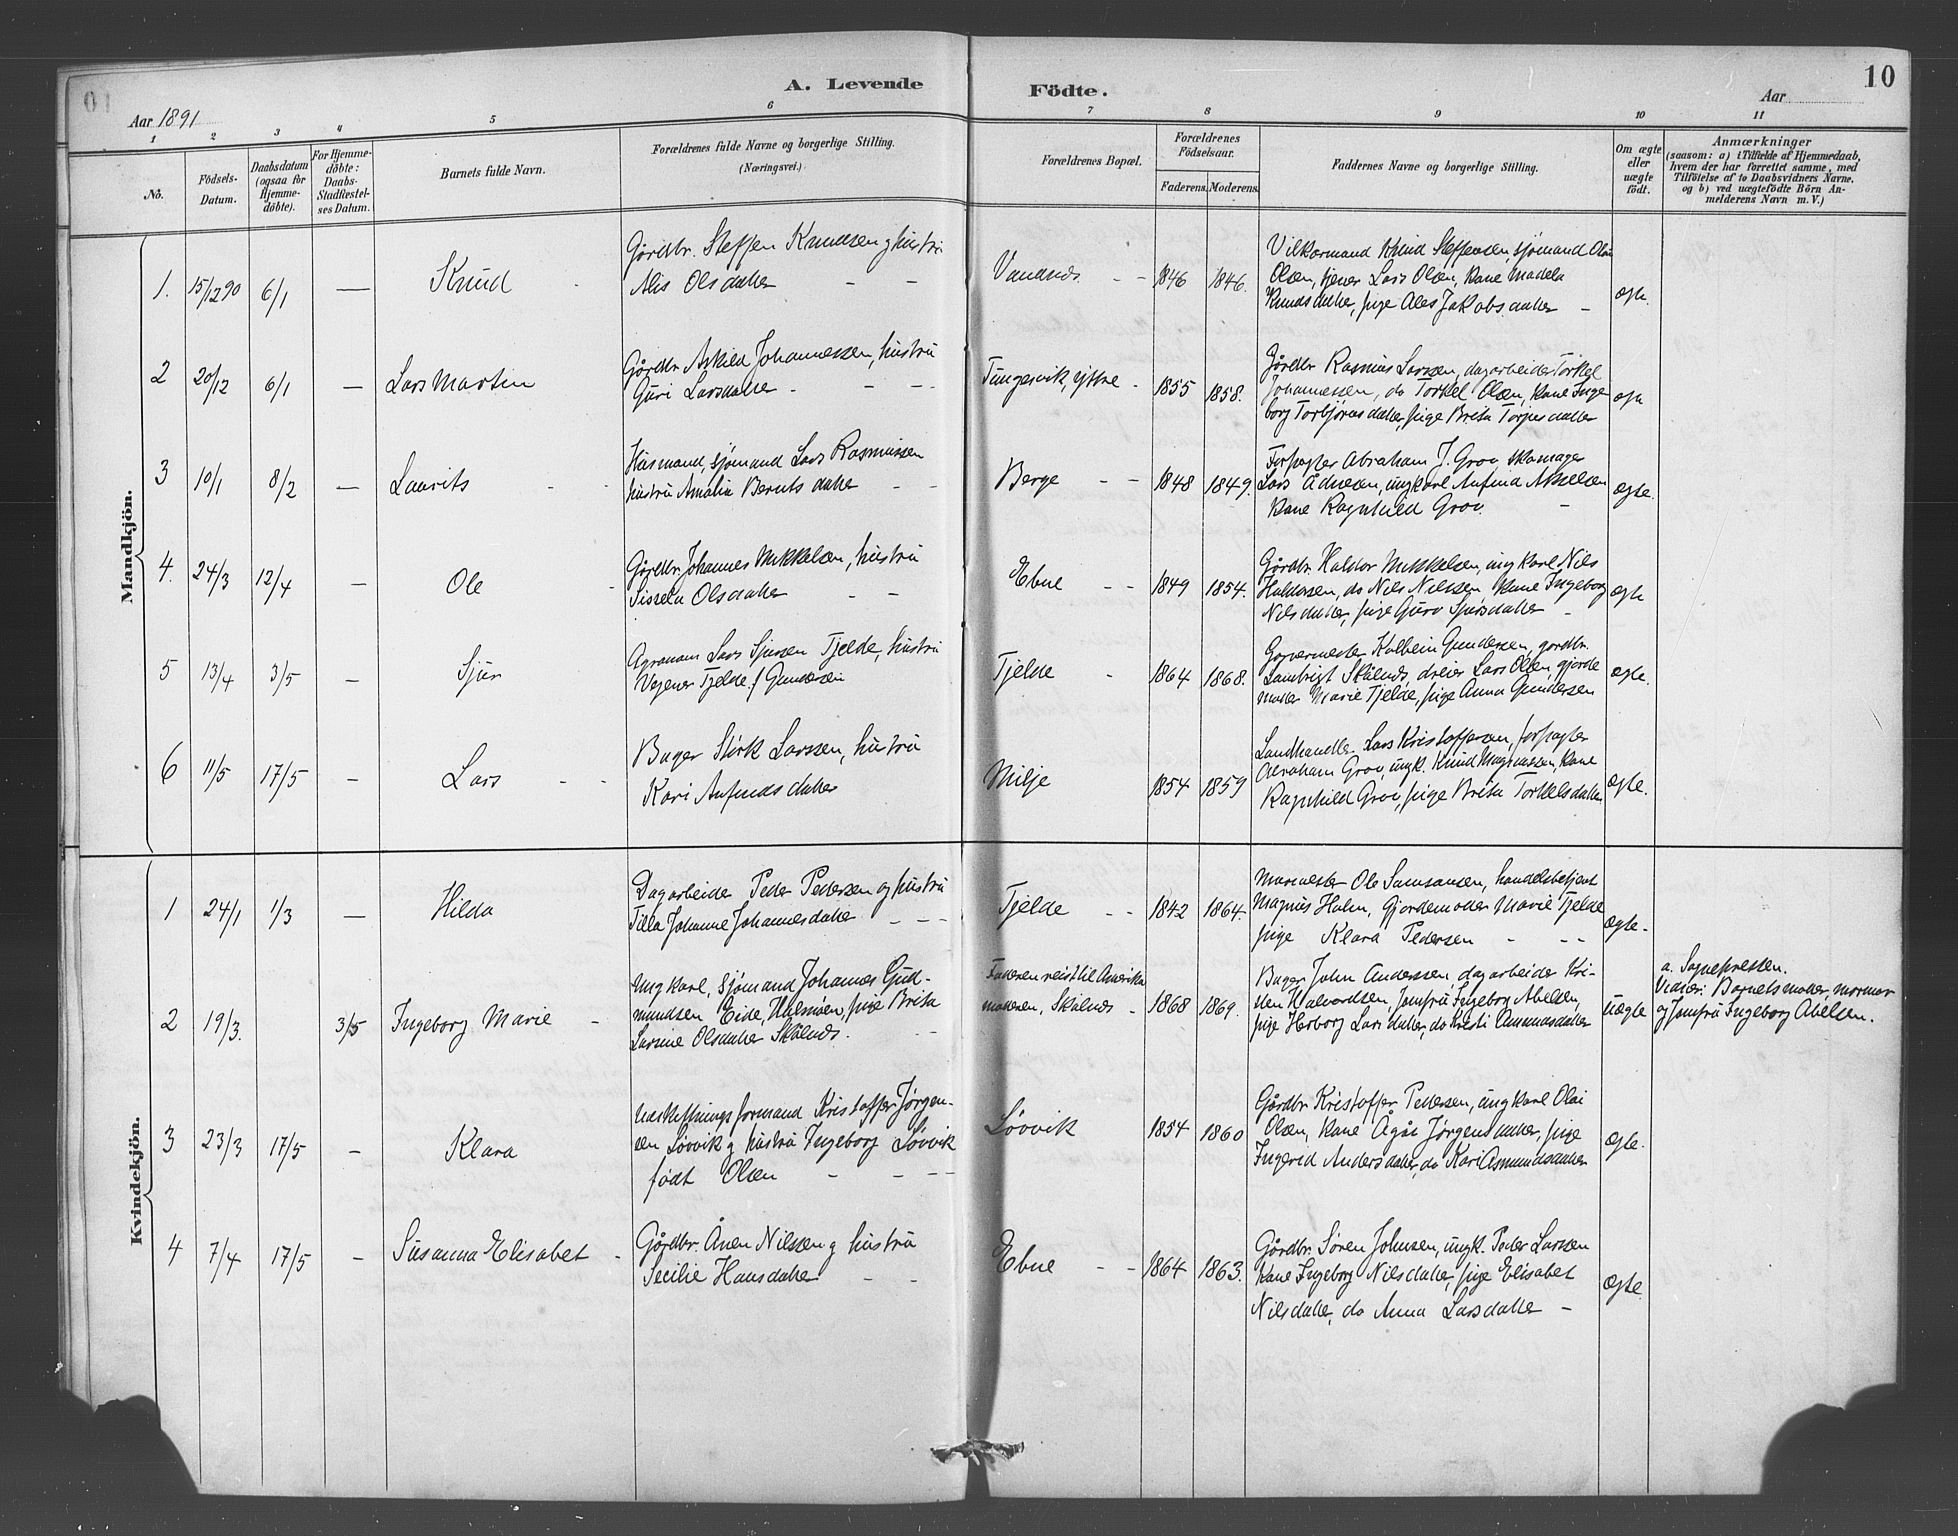 A. Levende Födte.
10
Aar 1891
Aar
1 2 3 4 5 6 7 8 9 10 11
No.
Födsels-Datum.
Daabsdatum (ogsaa for Hjemme-döbte).
For Hjemme-döbte: Daabs-Stadfæstel-ses Datum.
Barnets fulde Navn.
Forældrenes fulde Navne og borgerlige Stilling.
(Næringsvei.)
Forældrenes Bopæl.
Forældrenes Födselsaar.
Faderens. Moderens.
Faddernes Navne og borgerlige Stilling.
Om ægte eller uægte födt.
Anmærkninger
(saasom: a) i Tilfælde af Hjemmedaab,
hvem der har forrettet samme, med
Tilföielse af to Daabsvidners Navne.
og b) ved uægtefödte Börn An-
melderens Navn m. V.)
Mandkjön.
1. 15/12 90 6/1 — Knud
Gårdbr. Steffen Knudsen og hustru
Alis Olsdatter
1846 1846.
Vilkormand Knud Steffensen, sjømand Olai
Olsen, tjener Lars Olsen, kone Madela
Knudsdatter, pige Ales Jakobsdatter
ægte.
2 20/12 6/1 — Lars Martin
Gårdbr. Askild Johannessen, hustru
Guri Larsdatter
Tungesvik, yttre
1855 1858.
Gårdbr Rasmus Larssen, dagarbeider Torkel
Johannessen, do Torkel Olsen, kone Inge-
borg Torbjørnsdatter, pige Brita Torjusdatter
ægte
3 10/1 8/2 — Laurits
Husmand, sjømand Lars Rasmussen
hustru Amalia Berntsdatter
Berge
1848 1849.
Forpagter Abraham J. Grov, skomager
Lars Ådnesen, ungkarl Anfind Akselsen
kone Ragnhild Grov.
ægte.
4. 24/3 12/4 — Ole
Gårdbr. Johannes Mikkelsen, hustru
Sissela Olsdatter
Ebne
1849 1854.
Gårdbr. Haldor Mikkelsen, ungkarl Nils
Haldorsen, do Nils Nilssen, kone Ingeborg
Nilsdatter, pige Guro Sjursdatter
ægte
5 13/4 3/5 — Sjur
Agronom Lars Sjursen Tjelde, hustru
Tjelde f. Gundersen
Tjelde
1864 1868.
Garvermester Kolbein Gundersen, gårdbr.
Lambrigt dreier Lars Olsen, gjorde
moder Marie Tjelde, pige Anna Gundersen
ægte.
6 11/5 17/5 — Lars
Bager Størk Larssen, hustru
Kari Anfindsdatter
Milje
1854 1859
Landhandler Lars Kristoffersen, forpagter
Abraham Grov, ungk. Knud Magnussen, kone
Ragnhild Grov, pige Brita Torkelsdatter
ægte.
Kvindekjön.
1 24/1 1/3 — Hilda
Dagarbeider Peder Pedersen og hustru
Tilla Johanne Johannesdatter
Tjelde
1842 1864.
Ole Samsonsen, handelsbetjent
Magnus Holm, Gjordemoder Marie Tjelde
pige Klara Pedersen
ægte
2 19/3. 3/5 Ingeborg Marie
Ungkarl, sjømand Johannes Gud-
mundsen Eide, Halsnøen, pige Brita
Larine Olsdatter
Faderen reist til Amerika
moderen,
1868 1869.
Bager John Anderssen, dagarbeider Kri-
sten Halvordsen, Jomfru Ingeborg Abelsen,
pige Herborg Larsdatter, do Kristi
Uægte
a. Sognepresten.
Vidner: Barnets moder, mormor
og Jomfru Ingeborg Abelsen.
3 23/3 17/5 — Klara
Udskiftningsformand Kristoffer Jørgen-
sen Løvvik og hustru Ingeborg Løvvik
født Olsen
Løvvik
1854 1860
Gårdbr Kristoffer Pedersen, ungkarl Olai
Olsen, kone Ågåt Jørgensdatter, pige
Ingerid Andersdatter, do Kari Asmundsdatter
ægte.
4 7/4 17/5 — Susanna Elisabet
Gårdbr. Ånen Nilssen og hustru
Secilie Hansdatter
Ebne
1864 1863.
Gårdbr. Søren Johnsen, ungk. Peder Larssen
kone Ingeborg Nilsdatter, pige Elisabet
Nilsdatter, do Anna Larsdatter
Ægte.